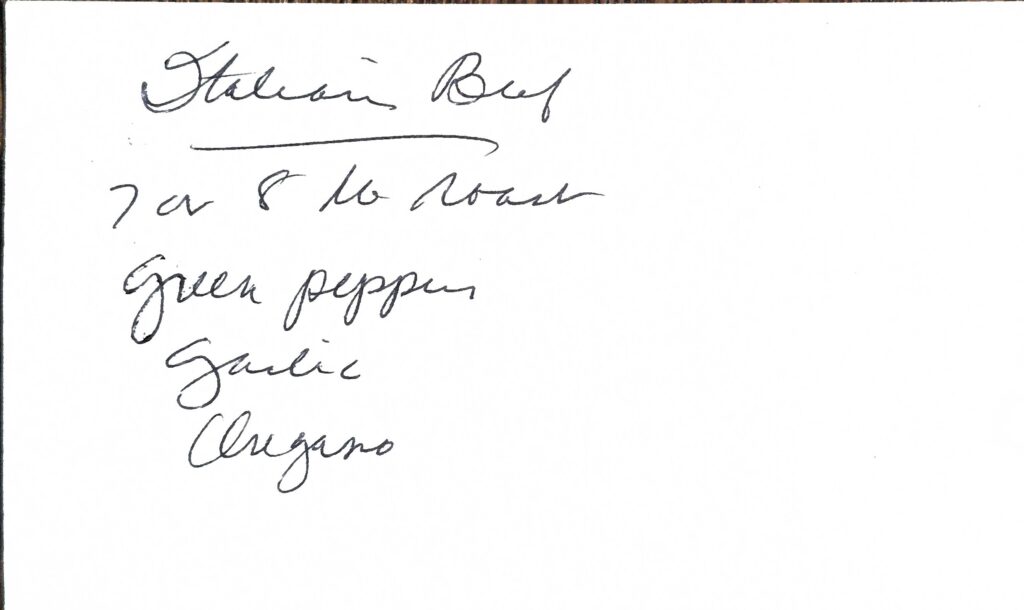 Italian Beef
7 or 8 lb roast
Green pepper
Garlic
Oregano